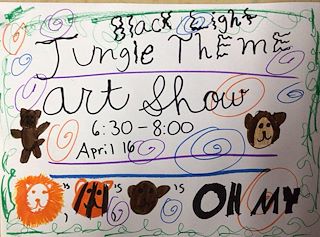 Black Light
Jungle ThEmE
art Show
6:30-8:00
April 16
's, 's 's OH MY